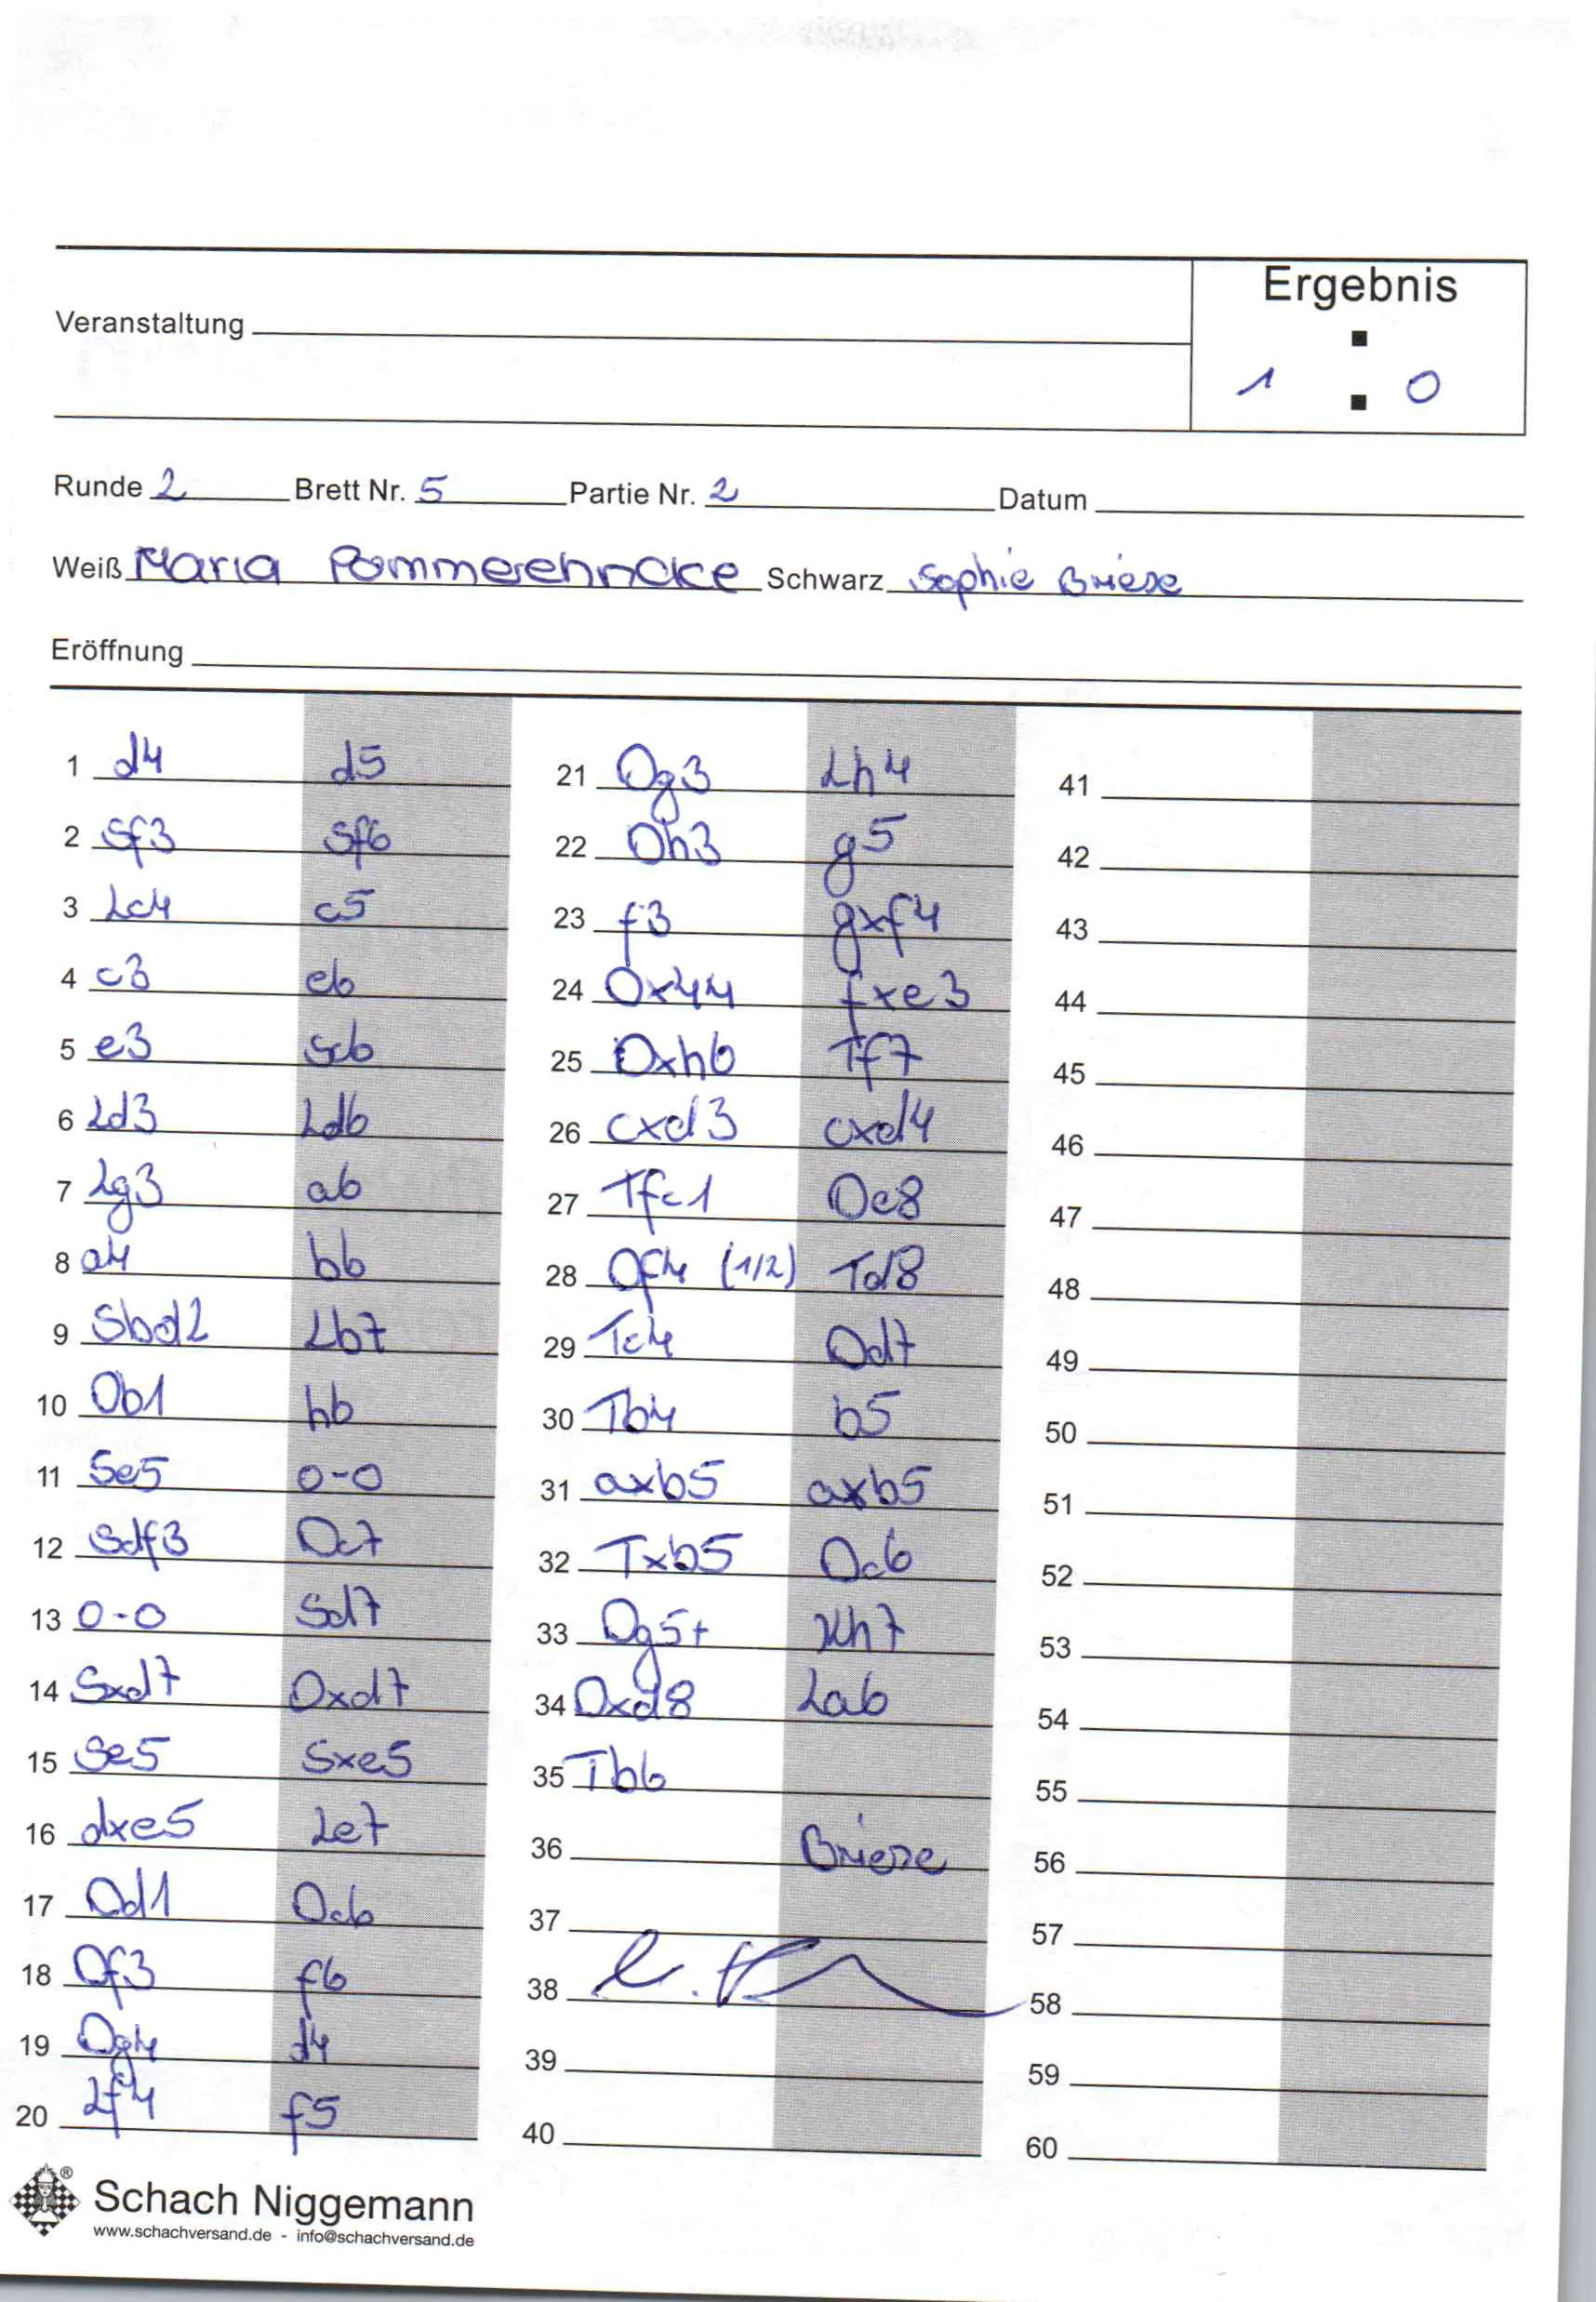 Ergebnis
Veranstaltung
1 : 0
Runde 2 Brett Nr. 5 Partie Nr. 2 Datum
Weiß Maria Pommerehncke Schwarz Sophie Briese
Eröffnung
1 d4 d5
2 Sf3 Sf6
3 Lc4 c5
4 c3 e6
5 e3 Sc6
6 Ld3 Ld6
7 Lg3 a6
8 a4 b6
9 Sbd2 Lb7
10 Db1 h6
11 Se5 0-0
12 Sdf3 Dc7
13 0-0 Sd7
14 Sxd7 Dxd7
15 Se5 Sxe5
16 dxe5 Le7
17 Dd1 Dc6
18 Df3 f6
19 Dg4 d4
20 Lf4 f5
21 Dg3 Lh4
22 Dh3 g5
23 f3 gxf4
24 Dxh4 fxe3
25 Dxh6 Tf7
26 cxd3 cxd4
27 Tfc1 De8
28 Df4 (1/2) Td8
29 Tc4 Dd7
30 Tb4 b5
31 axb5 axb5
32 Txb5 Dc6
33 Dg5+ Kh7
34 Dxd8 La6
35 Tb6
36 Briese
37
38
39
40
41
42
43
44
45
46
47
48
49
50
51
52
53
54
55
56
57
58
59
60
Schach Niggemann ®
www.schachversand.de - info@schachversand.de